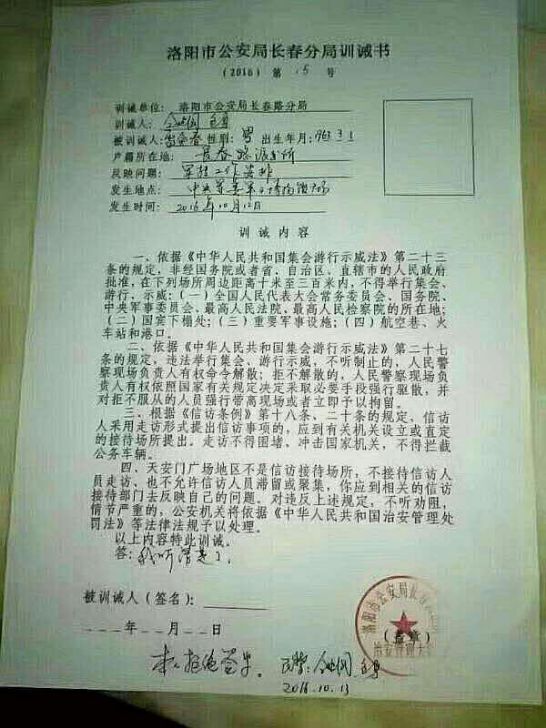 洛阳市公安局长春分局训诫书
(2016) 第 15 号
训诫单位: 洛阳市公安局长春路分局
训诫人:
被训诫人: 性别: 男 出生年月: 1963 3 1
户籍所在地: 长春路派出所
反映问题: 军转工作安排
发生地点: 中央军委
发生时间: 2016年10月12日
训诫内容
一、依据《中华人民共和国集会游行示威法》第二十三
条的规定,非经国务院或者省、自治区、直辖市的人民政府
批准,在下列场所周边距离十米至三百米内,不得举行集会、
游行、示威:(一)全国人民代表大会常务委员会、国务院、
中央军事委员会、最高人民法院、最高人民检察院的所在地;
(二)国宾下榻处;(三)重要军事设施;(四)航空港、火
车站和港口。
二、依据《中华人民共和国集会游行示威法》第二十七
条的规定,违法举行集会、游行、示威,不听制止的,人民警
察现场负责人有权命令解散;拒不解散的,人民警察现场负
责人有权依照国家有关规定决定采取必要手段强行驱散,并
对拒不服从的人员强行带离现场或者立即予以拘留。
三、根据《信访条例》第十八条、二十条的规定,信访
人采用走访形式提出信访事项的,应到有关机关设立或直定
的接待场所提出。走访不得围堵、冲击国家机关,不得拦截
公务车辆。
四、天安门广场地区不是信访接待场所,不接待信访人
员走访、也不允许信访人员滞留或聚集,你应到相关的信访
接待部门去反映自己的问题。对违反上述规定,不听劝阻,
情节严重的,公安机关将依据《中华人民共和国治安管理处
罚法》等法律法规予以处理。
以上内容特此训诫。
答: 我听清楚了。
被训诫人(签名):
年 月 日
洛阳市公安局长春
(盖章)
治安管理大
本人拒绝签字。 民警:
2016.10.13